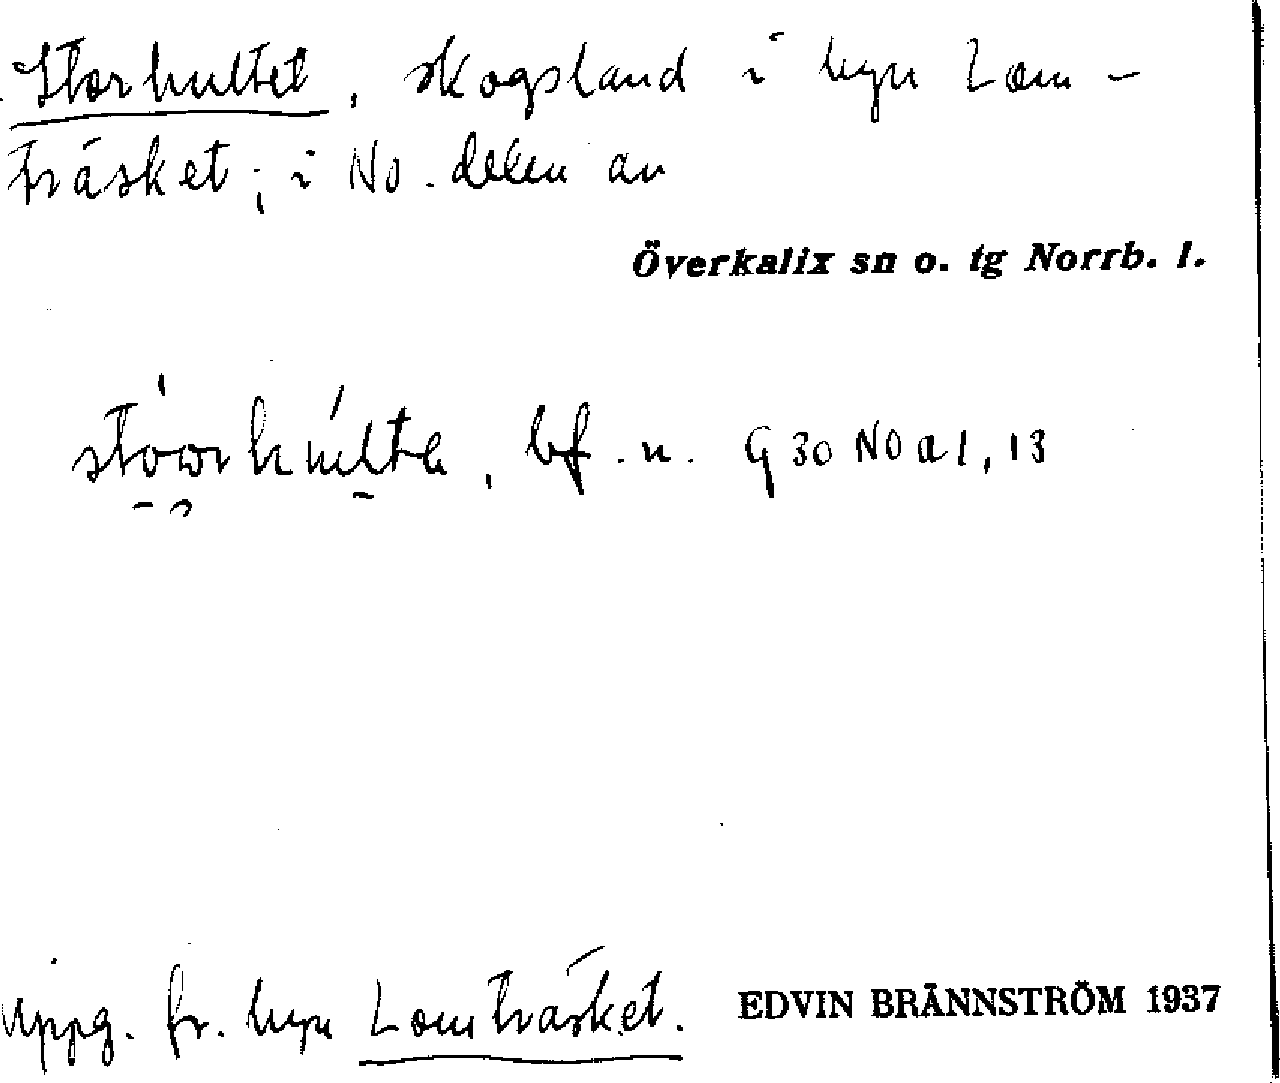 Storhultet, skogsland i byn Lom-
träsket; i No. delen av
Överkalix sn o. tg Norrb. l.
bf. n. G 30 NO a 1, 13
uppg. fr. byn Lomträsket. EDVIN BRÄNNSTRÖM 1937